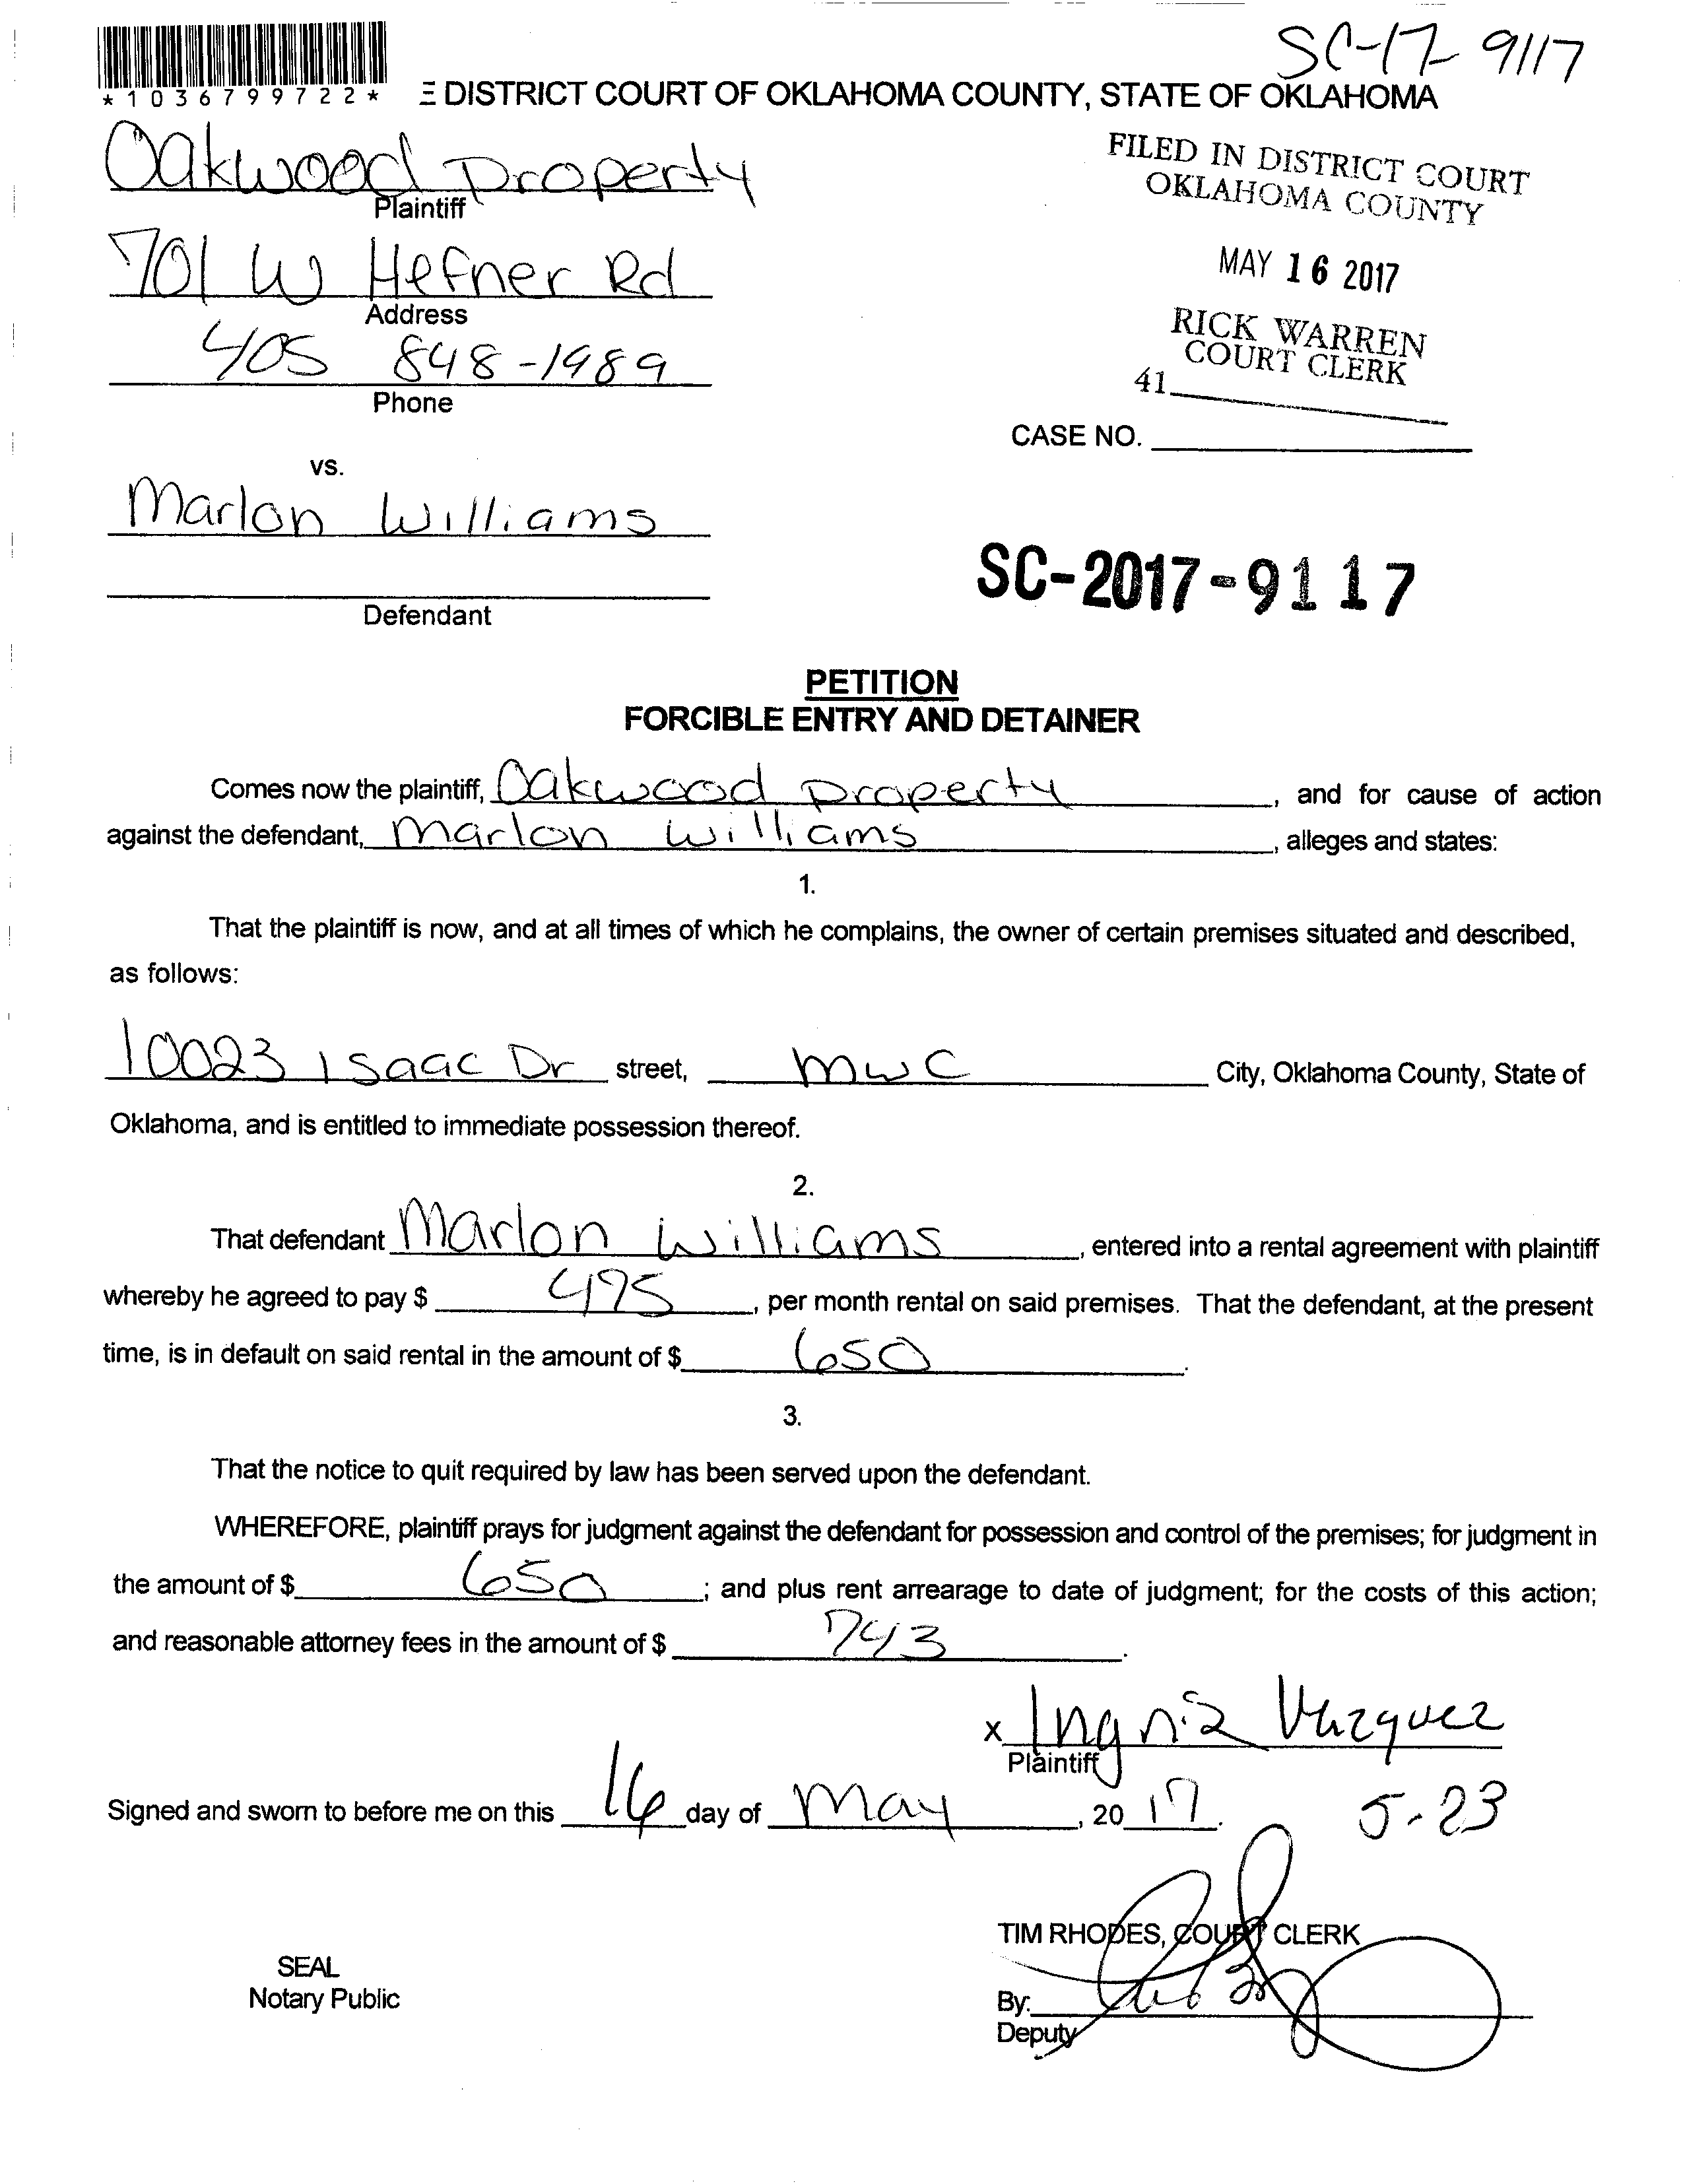 SC-17-9117
*1036799722*
E DISTRICT COURT OF OKLAHOMA COUNTY, STATE OF OKLAHOMA
Oakwood Property
Plaintiff
FILED IN DISTRICT COURT
OKLAHOMA COUNTY
701 W Hefner Rd
Address
MAY 16 2017
405 848-1989
Phone
RICK WARREN
COURT CLERK
41
CASE NO.
vs.
Marlon Williams
Defendant
SC-2017-9117
PETITION
FORCIBLE ENTRY AND DETAINER
Comes now the plaintiff, Oakwood Property, and for cause of action
against the defendant, Marlon Williams, alleges and states:
1.
That the plaintiff is now, and at all times of which he complains, the owner of certain premises situated and described,
as follows:
10023 Isaac Dr street, MWC City, Oklahoma County, State of
Oklahoma, and is entitled to immediate possession thereof.
2.
That defendant Marlon Williams, entered into a rental agreement with plaintiff
whereby he agreed to pay $ 495, per month rental on said premises. That the defendant, at the present
time, is in default on said rental in the amount of $ 650.
3.
That the notice to quit required by law has been served upon the defendant.
WHEREFORE, plaintiff prays for judgment against the defendant for possession and control of the premises; for judgment in
the amount of $ 650; and plus rent arrearage to date of judgment; for the costs of this action;
and reasonable attorney fees in the amount of $ 743.
x Ingrid Vazquez
Plaintiff
Signed and sworn to before me on this 16 day of May, 2017.
5-23
TIM RHODES, COURT CLERK
SEAL
Notary Public
By:
Deputy